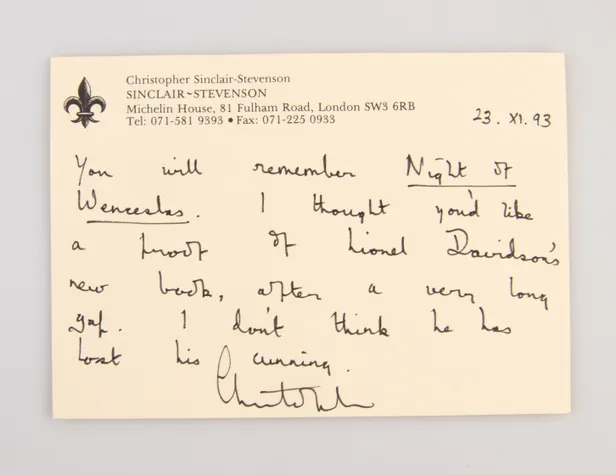 Christopher Sinclair-Stevenson
SINCLAIR-STEVENSON
Michelin House, 81 Fulham Road, London SW3 6RB
Tel: 071-581 9393 • Fax: 071-225 0933
23. XI. 93
You will remember Night of
Wenceslas. I thought you'd like
a proof of Lionel Davidson's
new book, after a very long
gap. I don't think he has
lost his cunning.
Christopher